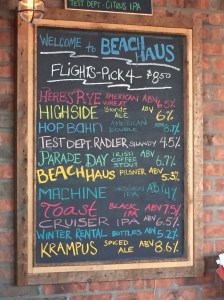 TEST DEPT- CITUS IPA
WELCOME to BEACH HAUS
FLIGHTS-PICK 4- $8.50
HERB'S RYE AMERICAN WHEAT ABV 4.5%
HIGHSIDE Blonde ALE ABV 6%
HOP BAHN AMERICAN DOUBLE
TEST DEPT. RADLER SHANDY 4.5%
PARADE DAY IRISH COFFEE STOUT ABV 6.7%
BEACH HAUS PILSNER ABV 5.5%
MACHINE
Toast BLACK IPA ABV 7.5%
CRUISER IPA ABV 6.5%
WINTER RENTAL BOTTLES ABV 5.2%
KRAMPUS SPICED ALE ABV 8.6%